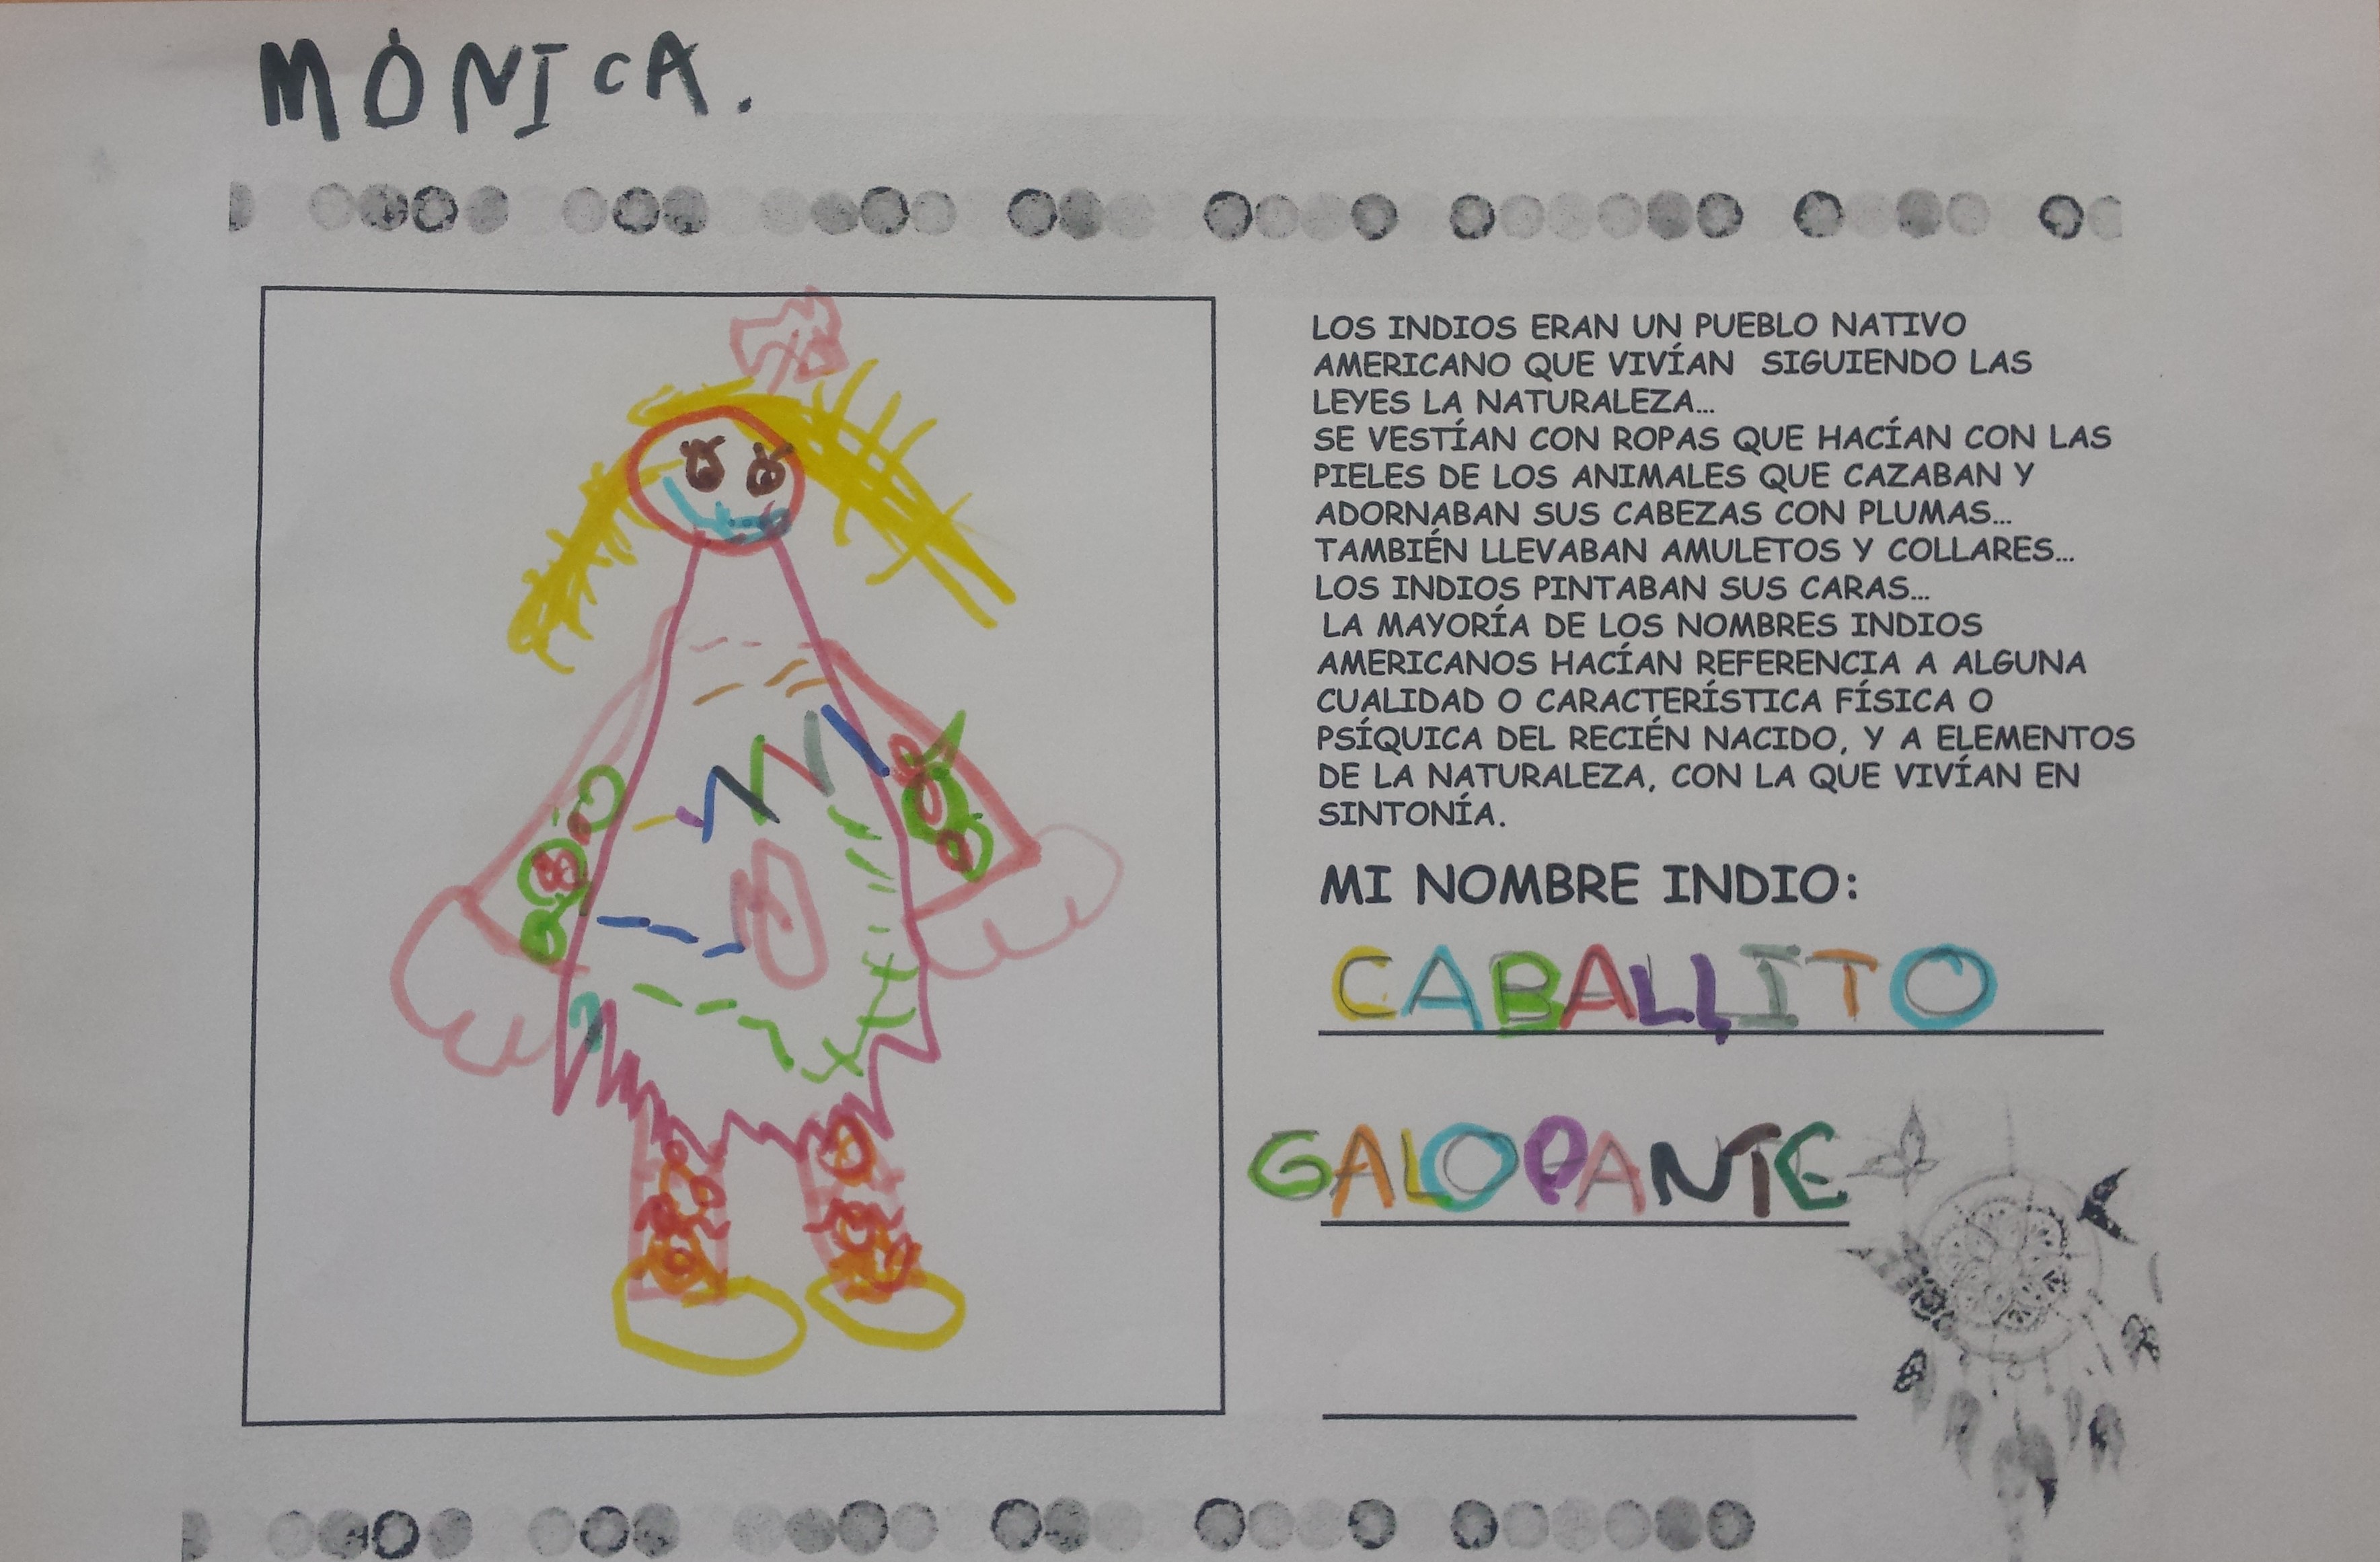 MÓNICA.
LOS INDIOS ERAN UN PUEBLO NATIVO
AMERICANO QUE VIVÍAN SIGUIENDO LAS
LEYES LA NATURALEZA...
SE VESTÍAN CON ROPAS QUE HACÍAN CON LAS
PIELES DE LOS ANIMALES QUE CAZABAN Y
ADORNABAN SUS CABEZAS CON PLUMAS...
TAMBIÉN LLEVABAN AMULETOS Y COLLARES...
LOS INDIOS PINTABAN SUS CARAS...
LA MAYORÍA DE LOS NOMBRES INDIOS
AMERICANOS HACÍAN REFERENCIA A ALGUNA
CUALIDAD O CARACTERÍSTICA FÍSICA O
PSÍQUICA DEL RECIÉN NACIDO, Y A ELEMENTOS
DE LA NATURALEZA, CON LA QUE VIVÍAN EN
SINTONÍA.
MI NOMBRE INDIO:
CABALLITO
GALOPANTE